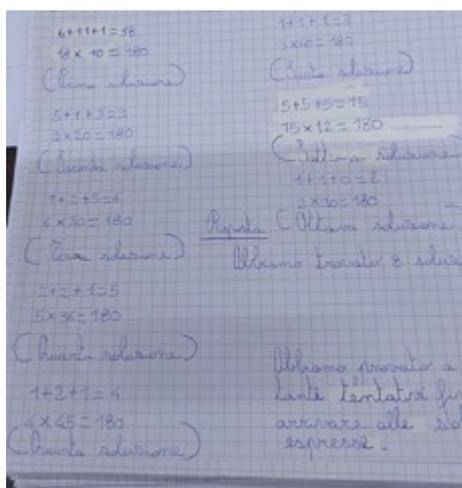 6+11+1=18
18 x 10 = 180
(Prima soluzione)
5+1+3=9
9x20=180
(Seconda soluzione)
1+2+3=6
6x30=180
(Terza soluzione)
2+2+1=5
5x36=180
(Quarta soluzione)
1+2+1=4
4x45=180
(Quinta soluzione)
1+1+1=3
3x60=180
(Sesta soluzione)
5+5+5=15
15x12=180
(Settima soluzione)
1+1+0=2
2x90=180
Risposta (Ottava soluzione)
Abbiamo trovato 8
Abbiamo provato a
tanti tentativi
arrivare alle
espresse.